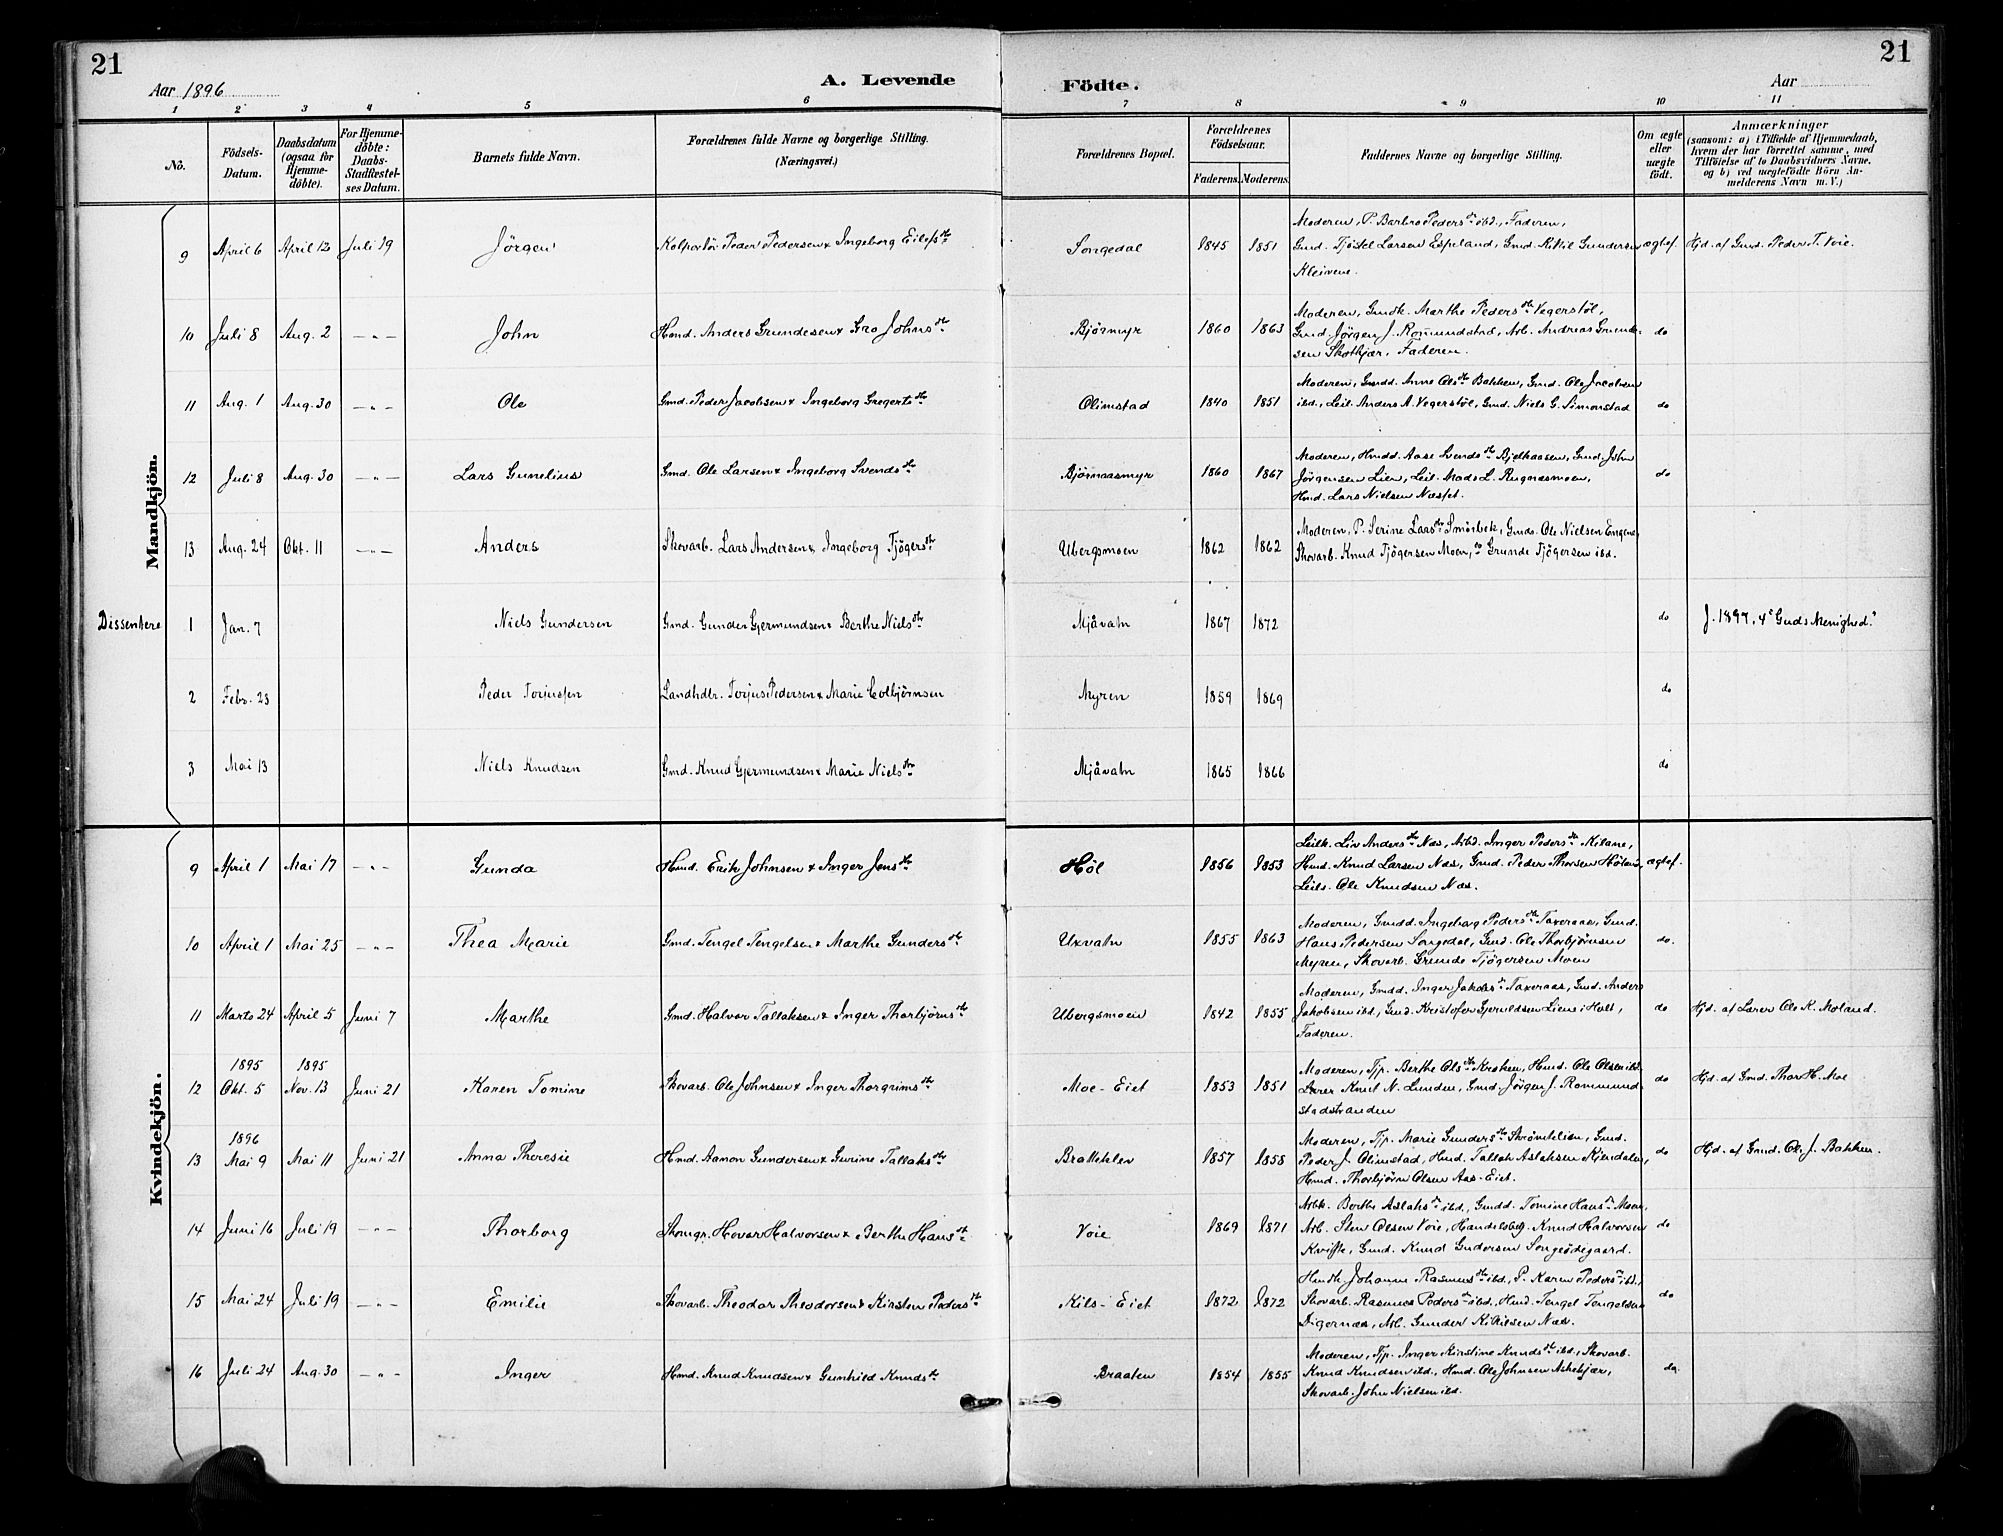 21
21
Aar 1896
A. Levende
Födte.
Aar
1 2 3 4 5 6 7 8 9 10 11
No.
Födsels-Datum.
Daabsdatum (ogsaa for Hjemmedöbte).
For Hjemmedöbte: Daabs-Stadfæstelses Datum.
Barnets fulde Navn.
Forældrenes fulde Navne og borgerlige Stilling. (Næringsvei.)
Forældrenes Bopæl.
Forældrenes Födselsaar.
Faderens. Moderens.
Faddernes Navne og borgerlige Stilling.
Om ægte eller uægte födt.
Anmærkninger (saasom: a) i Tilfælde af Hjemmedaab, hvem der har forrettet samme, med Tilföielse af to Daabsvidners Navne. og b) ved uægtefödte Börn Anmelderens Navn m. V.)
Mandkjön.
9 April 6 April 12 Juli 19 Jörgen Kolportör Peder Pedersen & Ingeborg Eilefsdtr Songedal 1845 1851 Moderen, P. Barbro Pedersdtr ibd., Faderen,
Gmd. Tjöstel Larsen Espeland, Gmd. Kittil Gundersen ægtef. Hjd. af Gmd. Peder T. Voie.
Kleivene.
10 Juli 8 Aug. 2 — „ — John Hmd. Anders Grundesen & Gro Johnsdtr Björmyr 1860 1863 Moderen, Gmdk. Marthe Pedersdtr Vegerstöl,
Gmd. Jörgen J. Rommundstad, Arb. Andreas Grundesen Skotkjær, Faderen. do
11 Aug. 1 Aug. 30 — „ — Ole Gmd. Peder Jacobsen & Ingeborg Gregertsdtr Olimstad 1840 1851 Moderen, Gmdd. Anne Olsdtr Bakken, Gmd. Ole Jacobsen
ibd., Leil. Anders A. Vegerstöl, Gmd. Niels G. Simonstad do
12 Juli 8 Aug. 30 — „ — Lars Gunelius Gmd. Ole Larsen & Ingeborg Svendsdtr Björnaasmyr 1860 1867 Moderen, Hmdd. Aase Svendsdtr Bjelkaasen, Gmd. John
Jörgensen Lien, Leil. Mads L. Rugnæsmoen,
Hmd. Lars Nielsen Næsset. do
13 Aug. 24 Okt. 11 — „ — Anders Skovarb. Lars Andersen & Ingeborg Tjögersdtr Ubergsmoen 1862 1862 Moderen, P. Serine Larsdtr Smörbek, Gmds. Ole Nielsen Engene,
Skovarb. Knud Tjögersen Moen, Grunde Tjögersen ibd.
Dissentere
1 Jan. 7 Niels Gundersen Gmd. Gunder Gjermundsen & Berthe Nielsdtr Mjåvatn 1867 1872 do J. 1897, 4 "Guds Menighed."
2 Febr. 23 Peder Torjussen Landhdlr. Torjus Pedersen & Marie Colbjørnsen Myren 1859 1869 do
3 Mai 13 Niels Knudsen Gmd. Knud Gjermundsen & Marie Nielsdtr Mjåvatn 1865 1866 do
Kvindekjön.
9 April 1 Mai 17 — „ — Gunda Hmd. Erik Johnsen & Inger Jensdtr Höl 1856 1853 Leilk. Liv Andersdtr Næs, Arbd. Inger Pedersdtr Kilane,
Hmd. Knud Larsen Næs, Gmd. Peder Thorsen Hölans, ægtef.
Leils. Ole Knudsen Næs.
10 April 1 Mai 25 — „ — Thea Marie Gmd. Tengel Tengelsen & Marthe Gundersdtr Uxvatn 1855 1863 Moderen, Gmdd. Ingeborg Pedersdtr Taxeraas, Gmd.
Hans Pedersen Songedal, Gmd. Ole Thorbjörnsen do.
Myren, Skovarb. Grunde Tjögersen Moen
11 Marts 24 April 5 Juni 7 Marthe Gmd. Halvor Tallaksen & Inger Thorbjörnsdtr Ubergsmoen 1842 1855 Moderen, Gmdd. Inger Jakobsdtr Taxeraas, Gmd. Anders
Jakobsen ibd., Gmd. Kristofer Gjeruldsen Liene i Holt, do Hjd. af Lærer Ole K. Moland.
Faderen.
1895 1895
12 Okt. 5 Nov. 13 Juni 21 Karen Tomine Skovarb. Ole Johnsen & Inger Thorgrimsdtr Moe-Eiet 1853 1851 Moderen, Tjp. Berthe Olsdtr Kroken, Hmd. Ole Olsen ibd.
Lærer Knut N. Lunden, Gmd. Jörgen J. Rommundstadstranden do Hjd. af Gmd. Thor H. Moe
1896
13 Mai 9 Mai 11 Juni 21 Anna Theresie Hmd. Aanon Gundersen & Gurine Tallaksdtr Bratteklev 1857 1858 Moderen, Tjp. Marie Gundersdtr Strömelien, Gmd.
Peder J. Olimstad, Hmd. Tallak Aslaksen Kjendalen, do Hjd. af Gmd. Ole J. Bakken.
Hmd. Thorbjörn Olsen Aas-Eiet.
14 Juni 16 Juli 19 — „ — Thorborg Hovar Halvorsen & Berthe Hansdtr Voie 1869 1871 Arbk. Berthe Aslaksdtr ibd., Gmdd. Tomine Hansdtr Moen,
Arb. Sten Olsen Voie, Handelsbg. Knud Halvorsen do
Gmd. Knud Gundersen Songeödegaard.
15 Mai 24 Juli 19 — „ — Emilie Skovarb. Theodor Theodorsen & Kirsten Pedersdtr Kils-Eiet 1872 1872 Hmdk. Johanne Rasmusdtr ibd., P. Karen Pedersdtr ibd.,
Skovarb. Rasmus Peders ibd., Hmd. Tengel Tengelsen do
Digernæs, Arb. Gunder Kittilsen Næs.
16 Juli 24 Aug. 30 — „ — Inger Hmd. Knud Knudsen & Gunhild Knudsdtr Braaten 1854 1855 Moderen, Tjp. Inger Kirstine Knudsdtr ibd., Skovarb.
Knud Knudsen ibd., Hmd. Ole Johnsen Askekjær, do.
Skovarb. John Nielsen ibd.